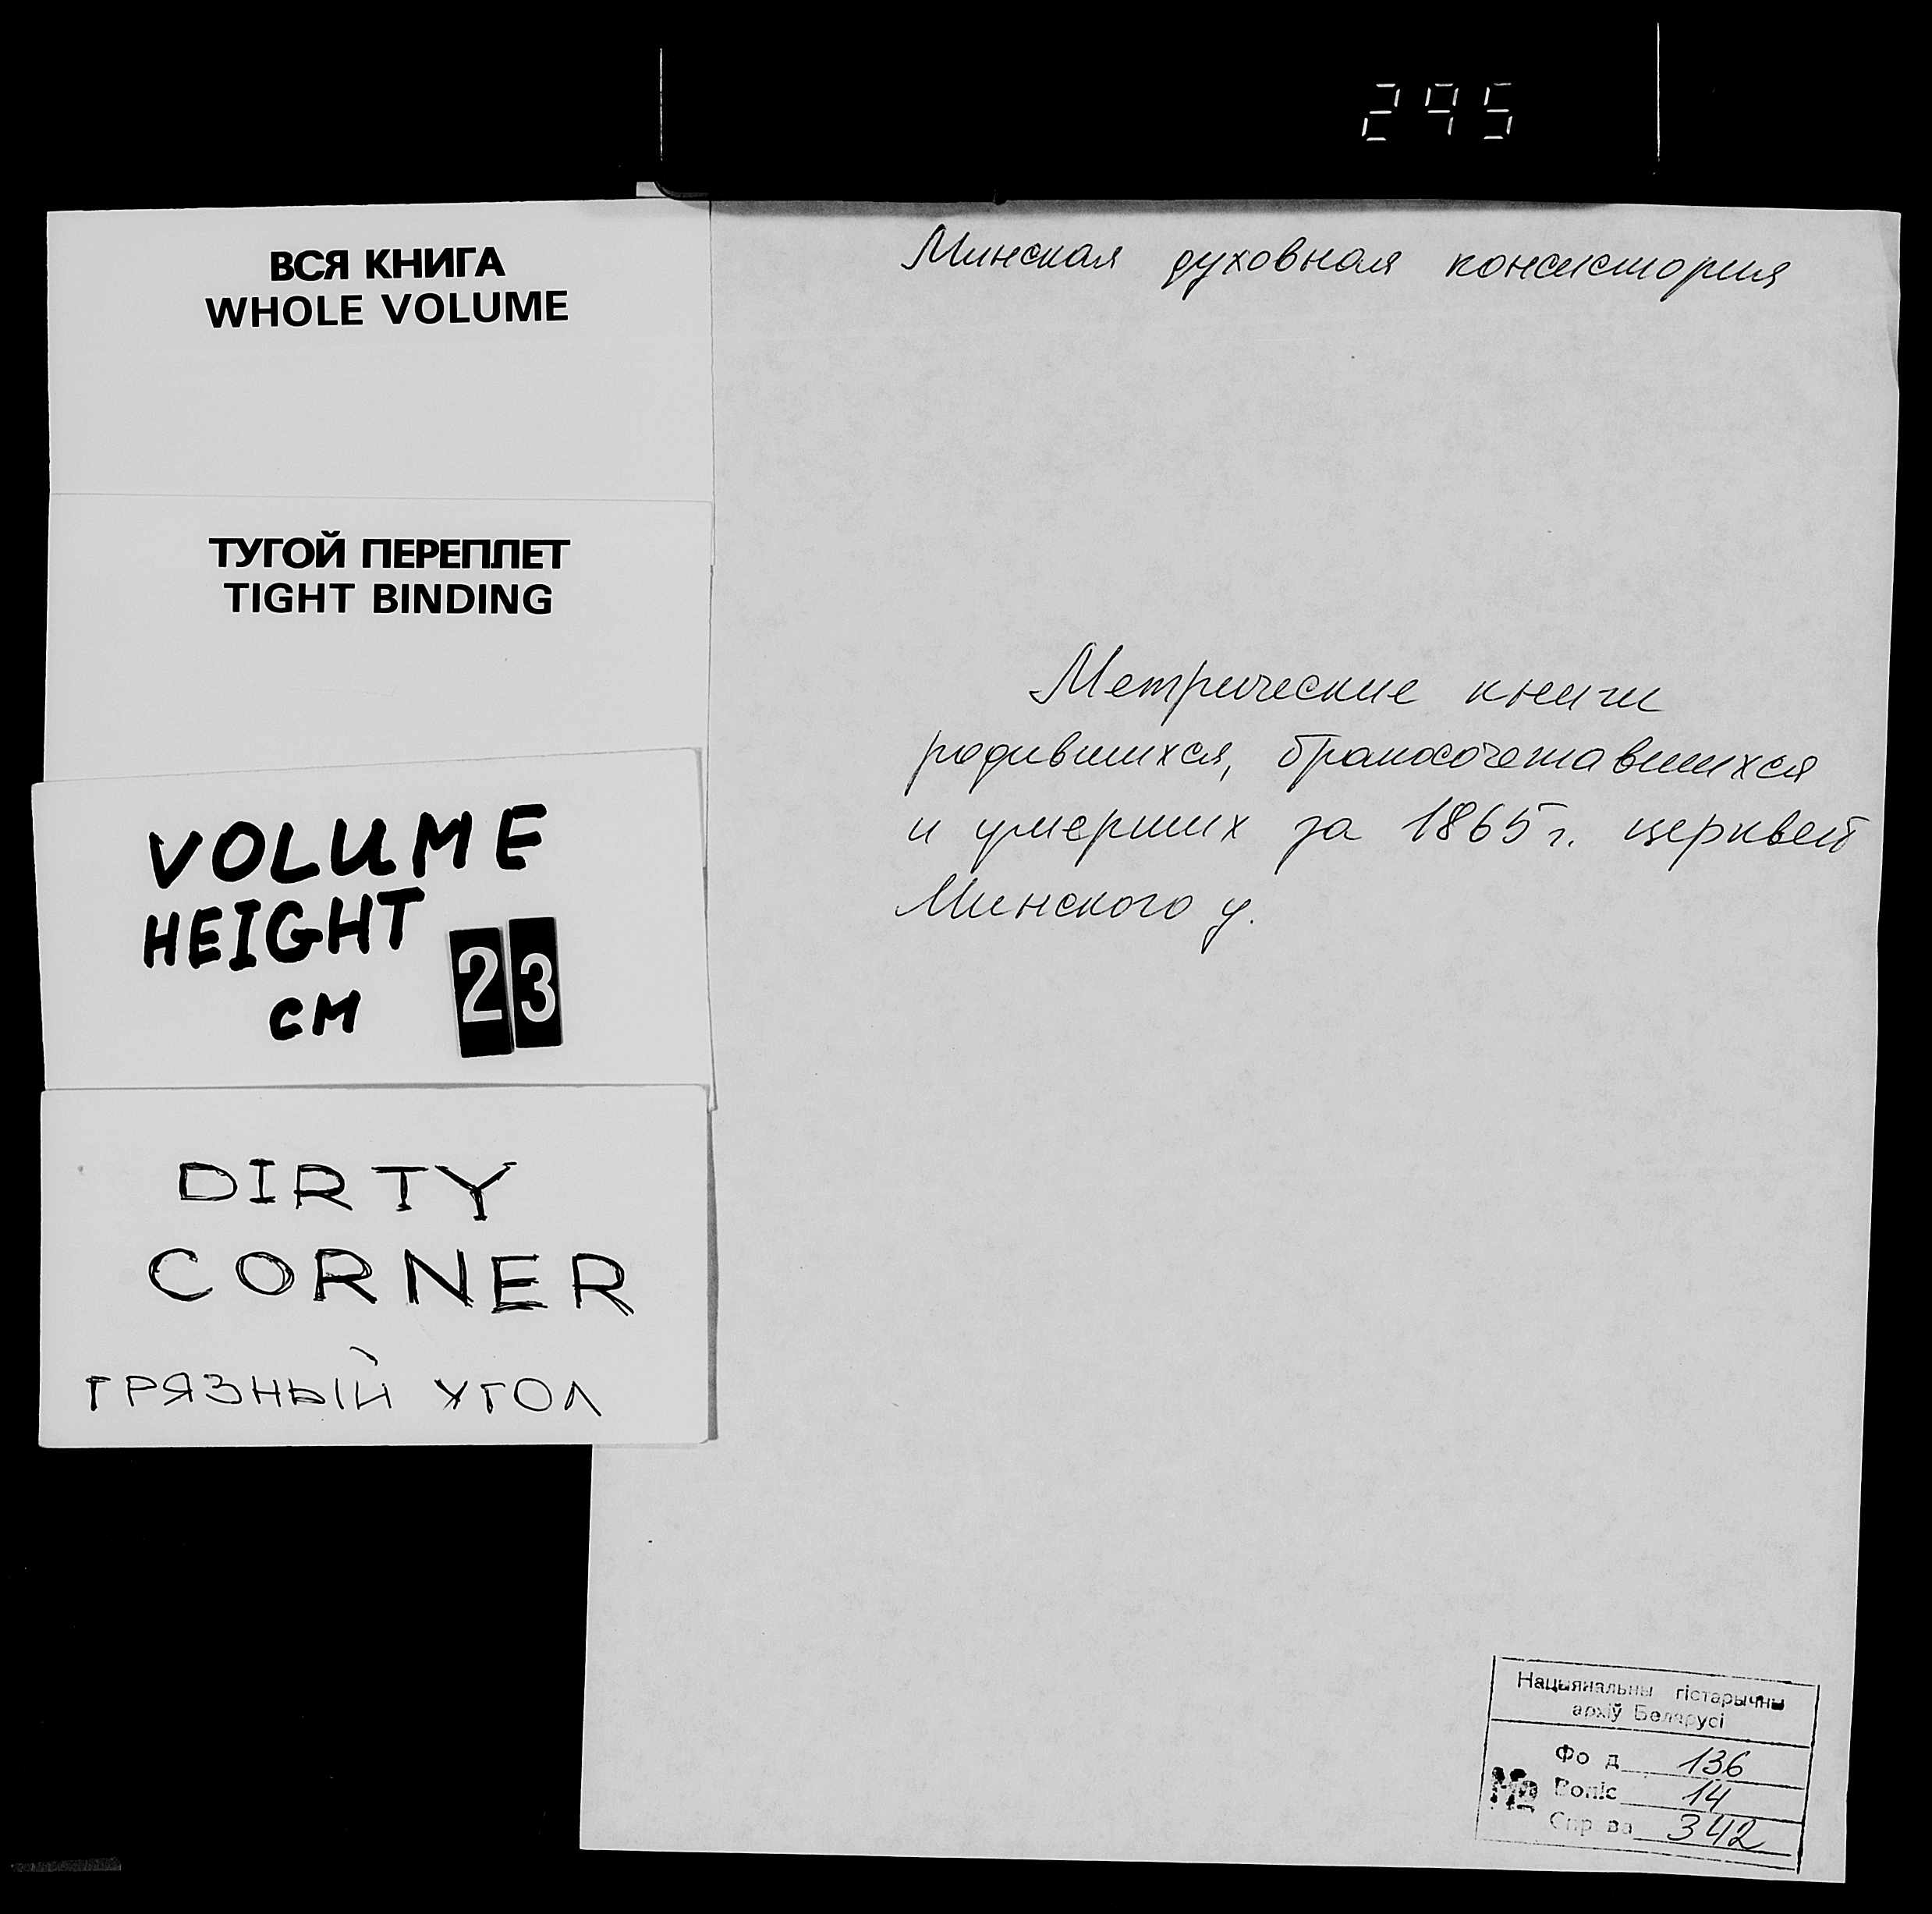 295
ВСЯ КНИГА
WHOLE VOLUME
ТУГОЙ ПЕРЕПЛЕТ
TIGHT BINDING
VOLUME
HEIGHT
CM 23
DIRTY
CORNER
ГРЯЗНЫЙ УГОЛ
Минская духовная консистория
Метрические книги
родившихся, бракосочетавшихся
и умерших за 1865 г. церквей
Минского у.
Нацыянальны гістарычны
архіў Беларусі
Фо д 136
№ Вопіс 14
Спр ва 342